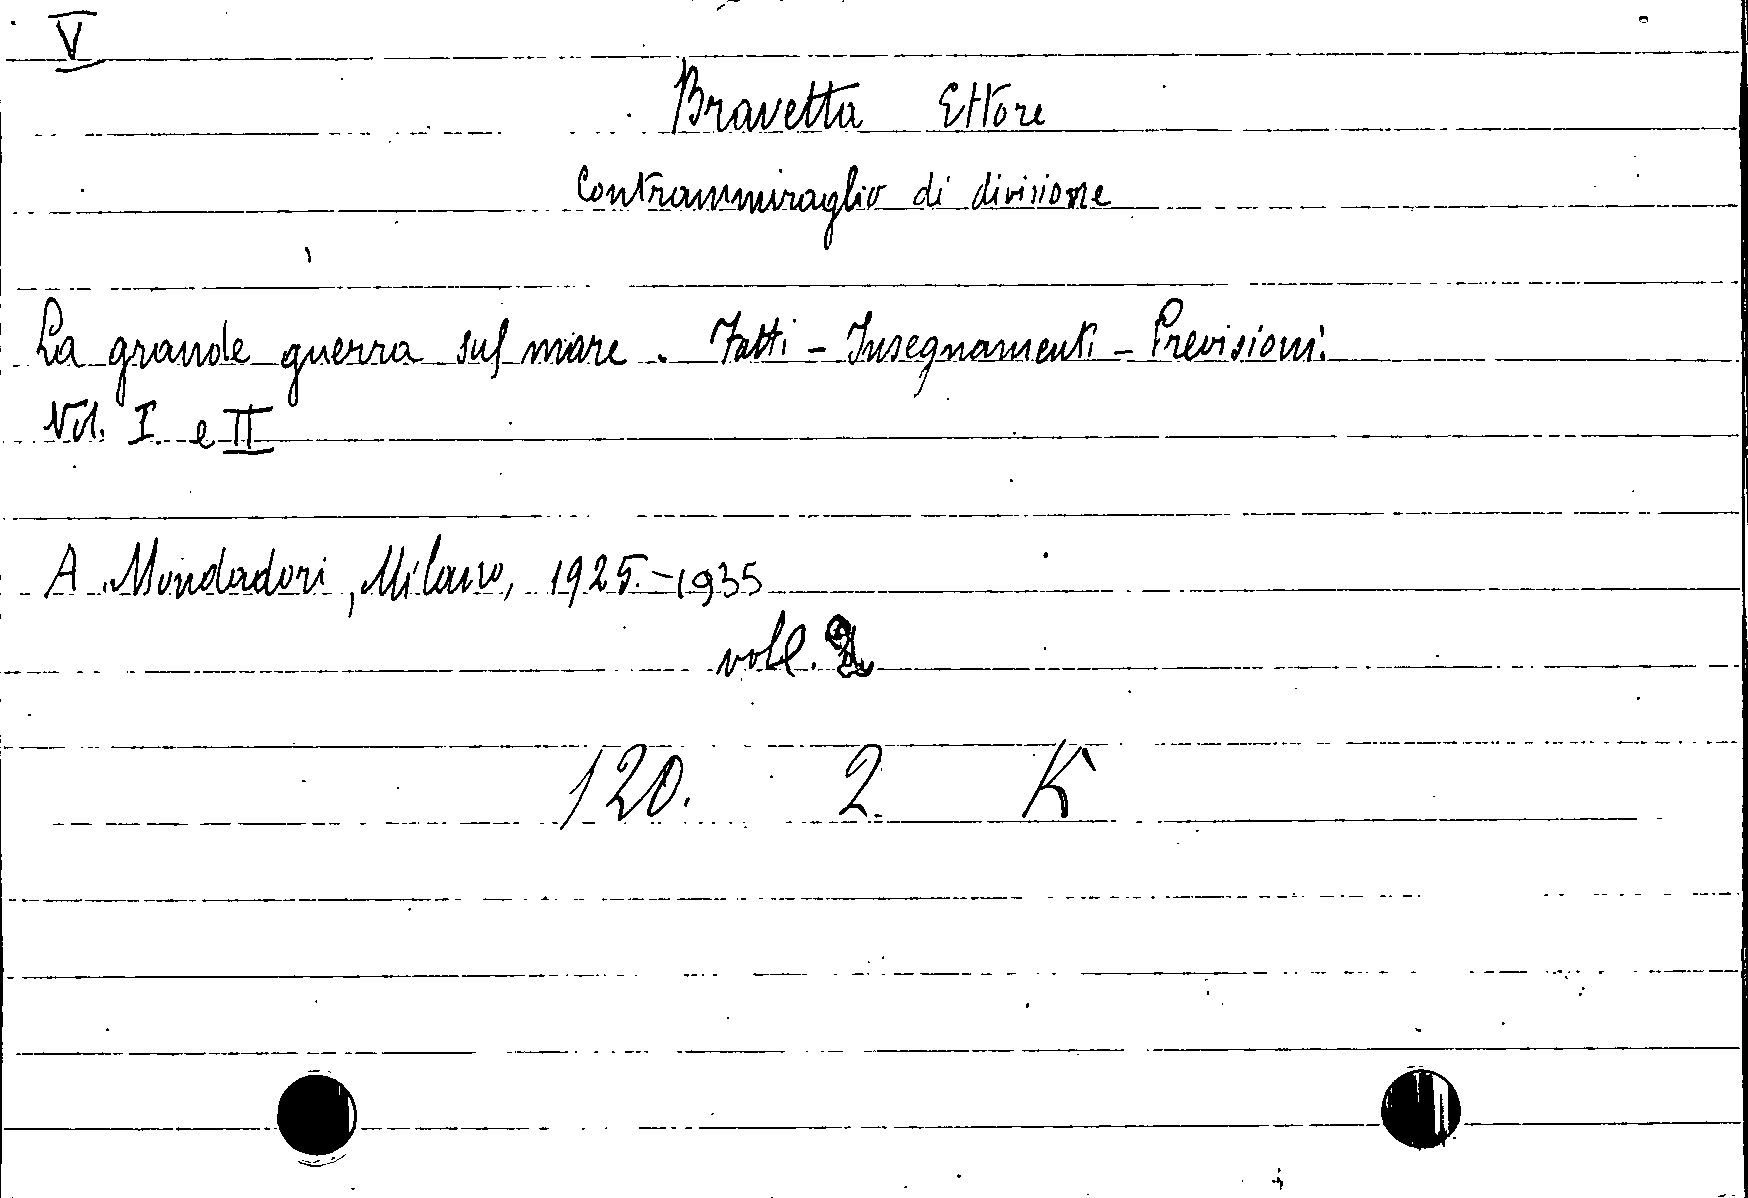 V
Bravetta Ettore
Contrammiraglio di divisione
La grande guerra sul mare. Fatti - Insegnamenti - Previsioni.
Vol. I e II
A. Mondadori, Milano, 1925.-1935
voll. 2
120. 2. K